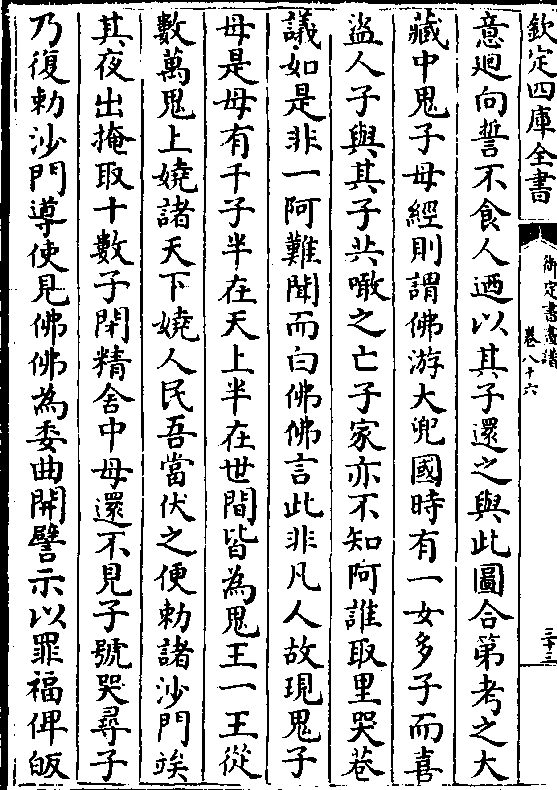 欽定四庫全書
御定書畫譜
卷八十六
三十三
意廻向誓不食人廼以其子還之與此圖合第考之大
藏中鬼子母經則謂佛游大兜國時有一女多子而喜
盜人子與其子共噉之亡子家亦不知阿誰取里哭巷
議如是非一阿難聞而白佛佛言此非凡人故現鬼子
母是母有千子半在天上半在世間皆為鬼王一王從
數萬鬼上嬈諸天下嬈人民吾當伏之便勅諸沙門竢
其夜出掩取十數子閉精舍中母還不見子號哭尋子
乃復勅沙門導使見佛佛為委曲開譬示以罪福俾皈